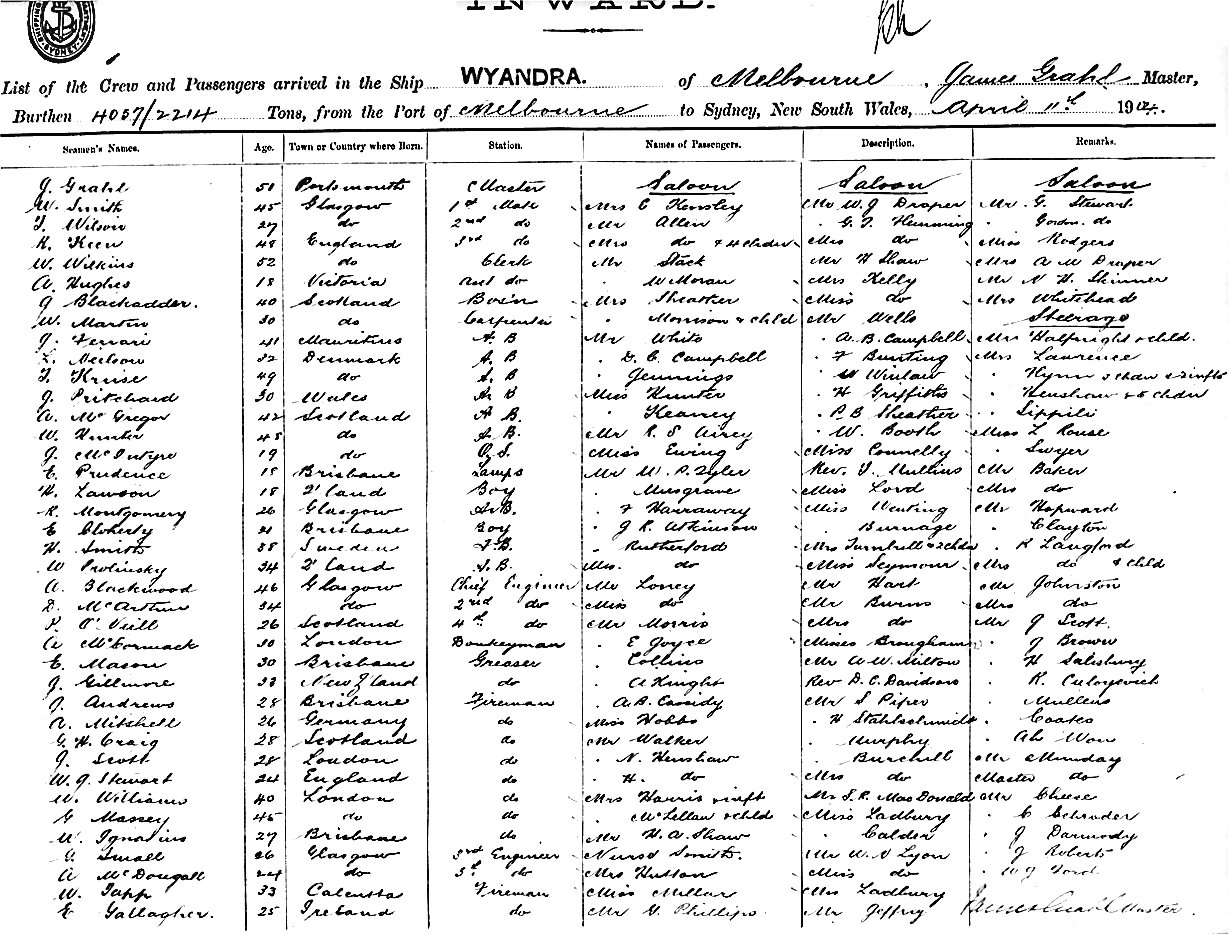 INWARD.
SYDNEY
List of the Crew and Passengers arrived in the Ship WYANDRA. of Melbourne, James Grahl Master,
Burthen 4057/2214 Tons, from the Port of Melbourne to Sydney, New South Wales, April 11th 1904.
Seamen's Names. Age. Town or Country where Born. Station. Names of Passengers. Description. Remarks.
J. Grahl 51 Portsmouth Master Saloon Saloon Saloon
W. Smith 45 Glasgow 1st Mate Mrs E Hensley Mr W J Draper Mr G. Stewart
T. Wilson 27 do 2nd do Mr Allen G. T. Hemming Gordon do
K. Keen 48 England 3rd do Mrs do & 4 chdn Mrs do Miss Rodgers
W. Wilkins 52 do Clerk Mr Stack Mr H Shaw Mrs A M Draper
A. Hughes 18 Victoria asst do W Moran Mrs Kelly Mr N H. Skinner
G Blackadder. 40 Scotland Bos'n Mrs Sheather Miss do Mrs Whitehead
W. Martin 30 do Carpenter Morrison & child Mr Wells Steerage
J. Ferrari 41 Mauritius A B Mr White A. B. Campbell Mrs Halfnight & child.
L. Neilson 32 Denmark A. B D. C. Campbell F Bunting Mrs Lawrence
T. Kruise 49 do A. B Jennings W Winlaw Hynn 3 chdn & 2 infts
J. Pritchard 30 Wales A. B Miss Hunter H Griffiths Henshaw & 5 chdn
A. McGregor 42 Scotland A B. Heaney P. B Sheather Sippili
W. Hunter 48 do A. B. Mr R. S Airey W. Booth Miss L Rouse
J. McIntyre 19 do O. S. Miss Ewing Miss Connelly Swyer
E. Prudence 18 Brisbane Lamps Mr W. P. Tyler Rev. J. Mullins Mr Baker
H. Lawson 18 Z'land Boy Musgrave Miss Lord Mrs do
R. Montgomery 26 Glasgow A. B. F Harraway Miss Venting Mr Hayward
E Cloherty 21 Brisbane Boy J R. Atkinson Burnage Clayton
H. Smith 38 Sweden A. B. Rutherford Mrs Turnbull & 2 chdn R Langford
W Prolinsky 34 Z'land A. B. Mrs. do Miss Seymour Mrs do & child
A. Blackwood 46 Glasgow Chief Engineer Mr Loney Mr Hart Mr Johnston
D. McArthur 34 do 2nd do Miss do Mr Burns Mrs do
P. O'Neill 26 Scotland 4th do Mr Morris Mrs do Mr J Scott.
A McCormack 30 London Donkeyman E Joyce Misses Brougham J Brown
E. Mason 30 Brisbane Greaser Collins Mr A. W. Milton H Salisbury
J. Gillmore 33 New Z'land do A Knight Rev D. C. Davidson K. Culoyevich
J. Andrews 28 Brisbane Fireman A. B. Cassidy Mr S Piper Mullens
A. Mitchell 26 Germany do Miss Hobbs H Stahlschmidt Coates
G. H. Craig 28 Scotland do Mr Walker Murphy Ah Won
J. Scott 28 London do N. Henshaw Burchill Mr Munday
W. J. Stewart 24 England do H. do Mrs do Master do
W. Williams 40 London do Mrs Harris & inft Mr S. R. MacDonald Mr Cheese
G Massey 45 do do McLellan & child Miss Ladbury C Schroder
W. Ignatius 27 Brisbane do Mr H. A. Shaw Calder J Darmody
A Small 26 Glasgow 3rd Engineer Nurse Smith. Mr W. N Lyon J Roberts
A McDougall 24 do 5th do Mrs Hutton Miss do W J Ford
W. Tapp 33 Calcutta Fireman Miss Millar Mrs Ladbury
E Gallagher. 25 Ireland do Mr G. Phillips. Mr Jeffrey James Grahl Master.